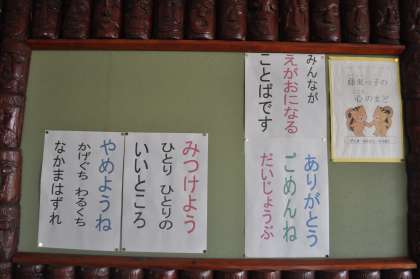 みんなが
えがおになる
ことばです
ありがとう
ごめんね
だいじょうぶ
みつけよう
ひとり ひとりの
いいところ
やめようね
かげぐち わるぐち
なかまはずれ
っ子の
心のまど